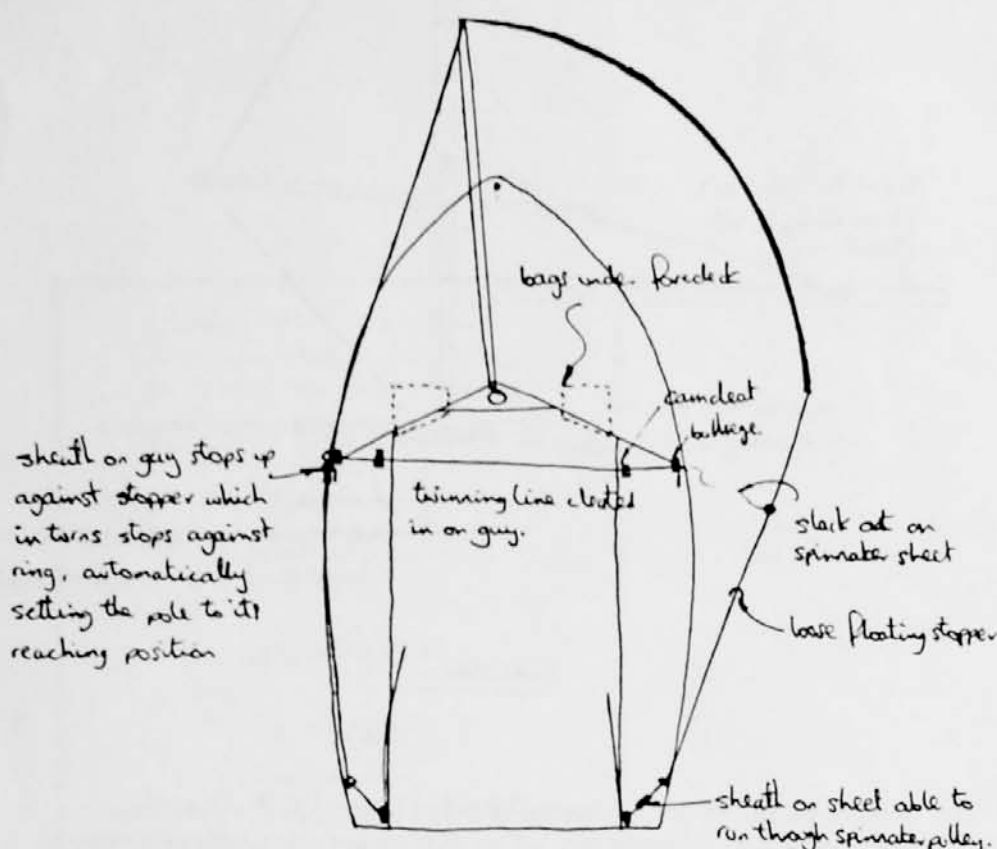 bags under foredeck
camcleat
bullseye
sheath on guy stops up
against stopper which
in turns stops against
ring, automatically
setting the pole to its
reaching position
twinning line cleated
in on guy.
slack out on
spinnaker sheet
loose floating stopper
sheath on sheet able to
run through spinnaker pulley.